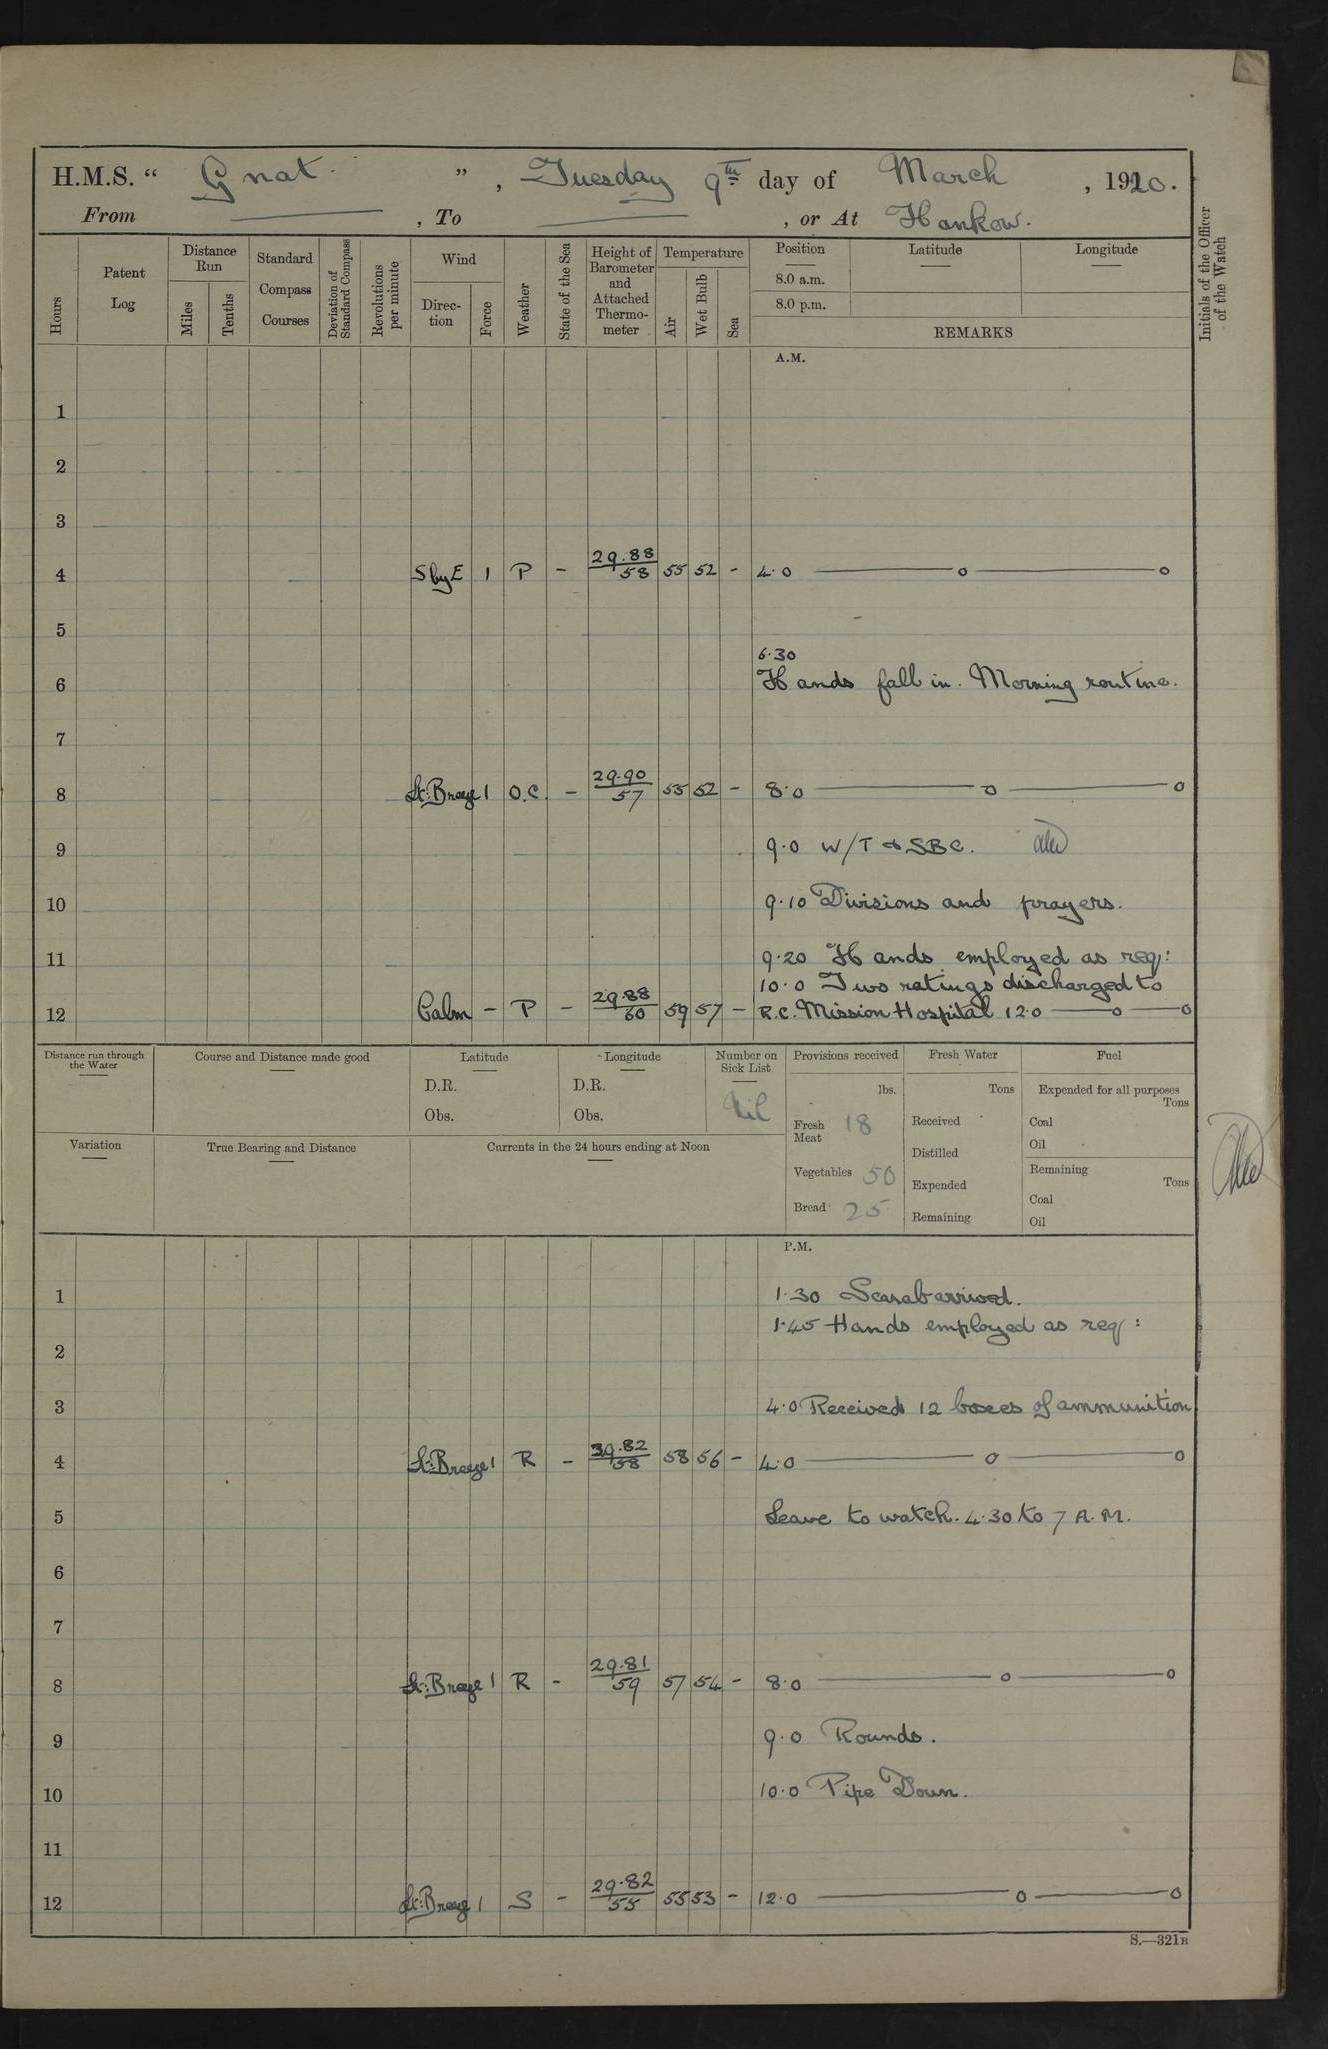 H.M.S. “ Gnat ”, Tuesday 9th day of March, 1920.
From —, To —, or At Hankow.
Initials of the Officer of the Watch
Hours
Patent Log
Distance Run
Miles
Tenths
Standard Compass Courses
Deviation of Standard Compass
Revolutions per minute
Wind
Direc-tion
Force
Weather
State of the Sea
Height of Barometer and Attached Thermo-meter
Temperature
Air
Wet Bulb
Sea
Position
Latitude
Longitude
8.0 a.m.
8.0 p.m.
REMARKS
A.M.
1
2
3
4 SbyE 1 P – 29.88 58 55 52 – 4.0 —o—o
5
6.30
6 Hands fall in. Morning routine.
7
8 Lt: Breeze 1 O.C. – 29.90 57 55 52 – 8.0 —o—o
9 9.0 W/T & SBC.
10 9.10 Divisions and prayers.
11 9.20 Hands employed as req:
10.0 Two ratings discharged to
12 Calm – P – 29.88 60 59 57 – R.C. Mission Hospital 12.0 —o—o
Distance run through the Water
Course and Distance made good
Latitude
D.R.
Obs.
Longitude
D.R.
Obs.
Number on Sick List
Nil
Provisions received
lbs.
Fresh Meat 18
Vegetables 50
Bread 25
Fresh Water
Tons
Received
Distilled
Expended
Remaining
Fuel
Expended for all purposes
Tons
Coal
Oil
Remaining
Tons
Coal
Oil
Variation
True Bearing and Distance
Currents in the 24 hours ending at Noon
P.M.
1 1.30 Scarab arrived.
1.45 Hands employed as req:
2
3 4.0 Received 12 boxes of ammunition
4 Lt: Breeze 1 R – 29.82 58 58 56 – 4.0 —o—o
5 Leave to watch. 4.30 to 7 A.M.
6
7
8 Lt: Breeze 1 R – 29.81 59 57 54 – 8.0 —o—o
9 9.0 Rounds.
10 10.0 Pipe Down.
11
12 Lt: Breeze 1 S – 29.82 55 55 53 – 12.0 —o—o
S.—321B